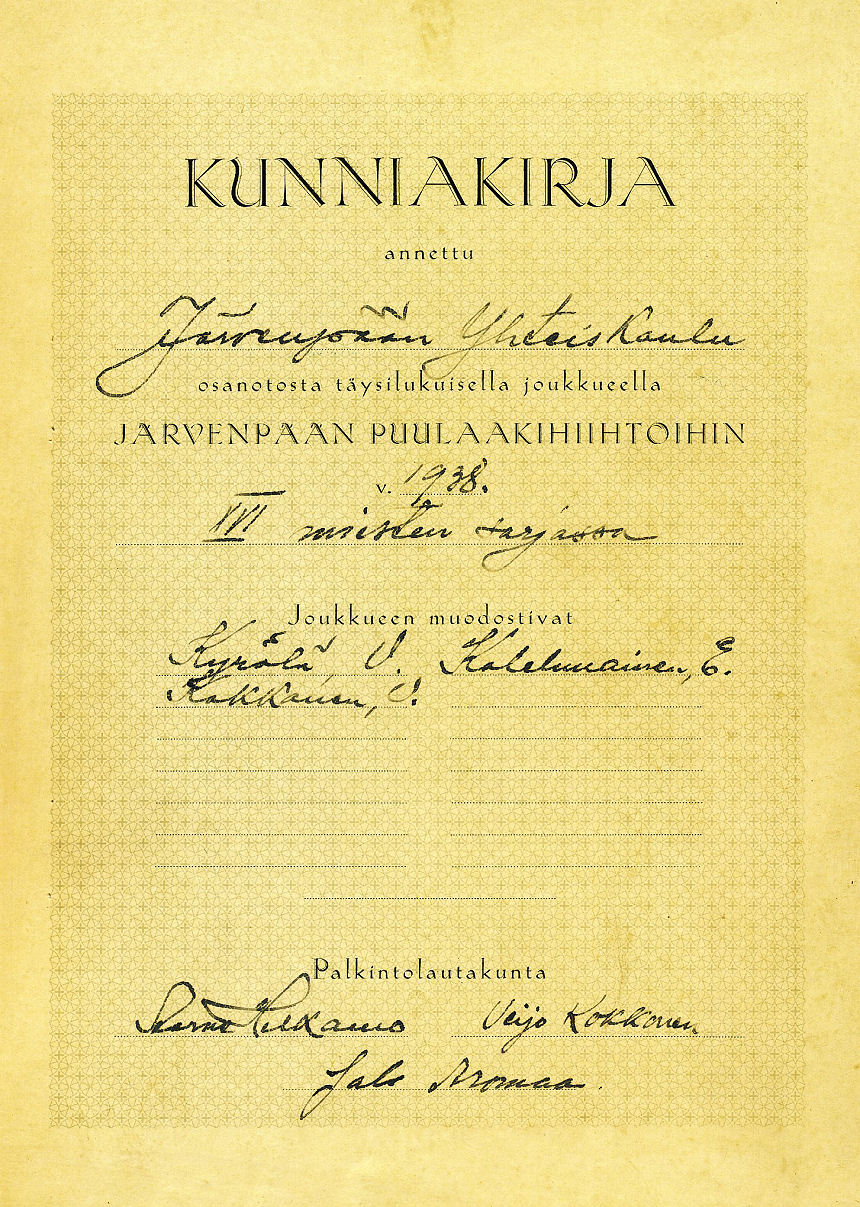 KUNNIAKIRJA
annettu
Järvenpään Yhteiskoulu
osanotosta täysilukuisella joukkueella
JÄRVENPÄÄN PUULAAKIHIIHTOIHIN
v. 1938.
XVI miesten sarjassa
Joukkueen muodostivat
Kyrölä, V. Kolehmainen, E.
Kokkonen, V.
Palkintolautakunta
Veijo Kokkonen
Jalo Aromaa.